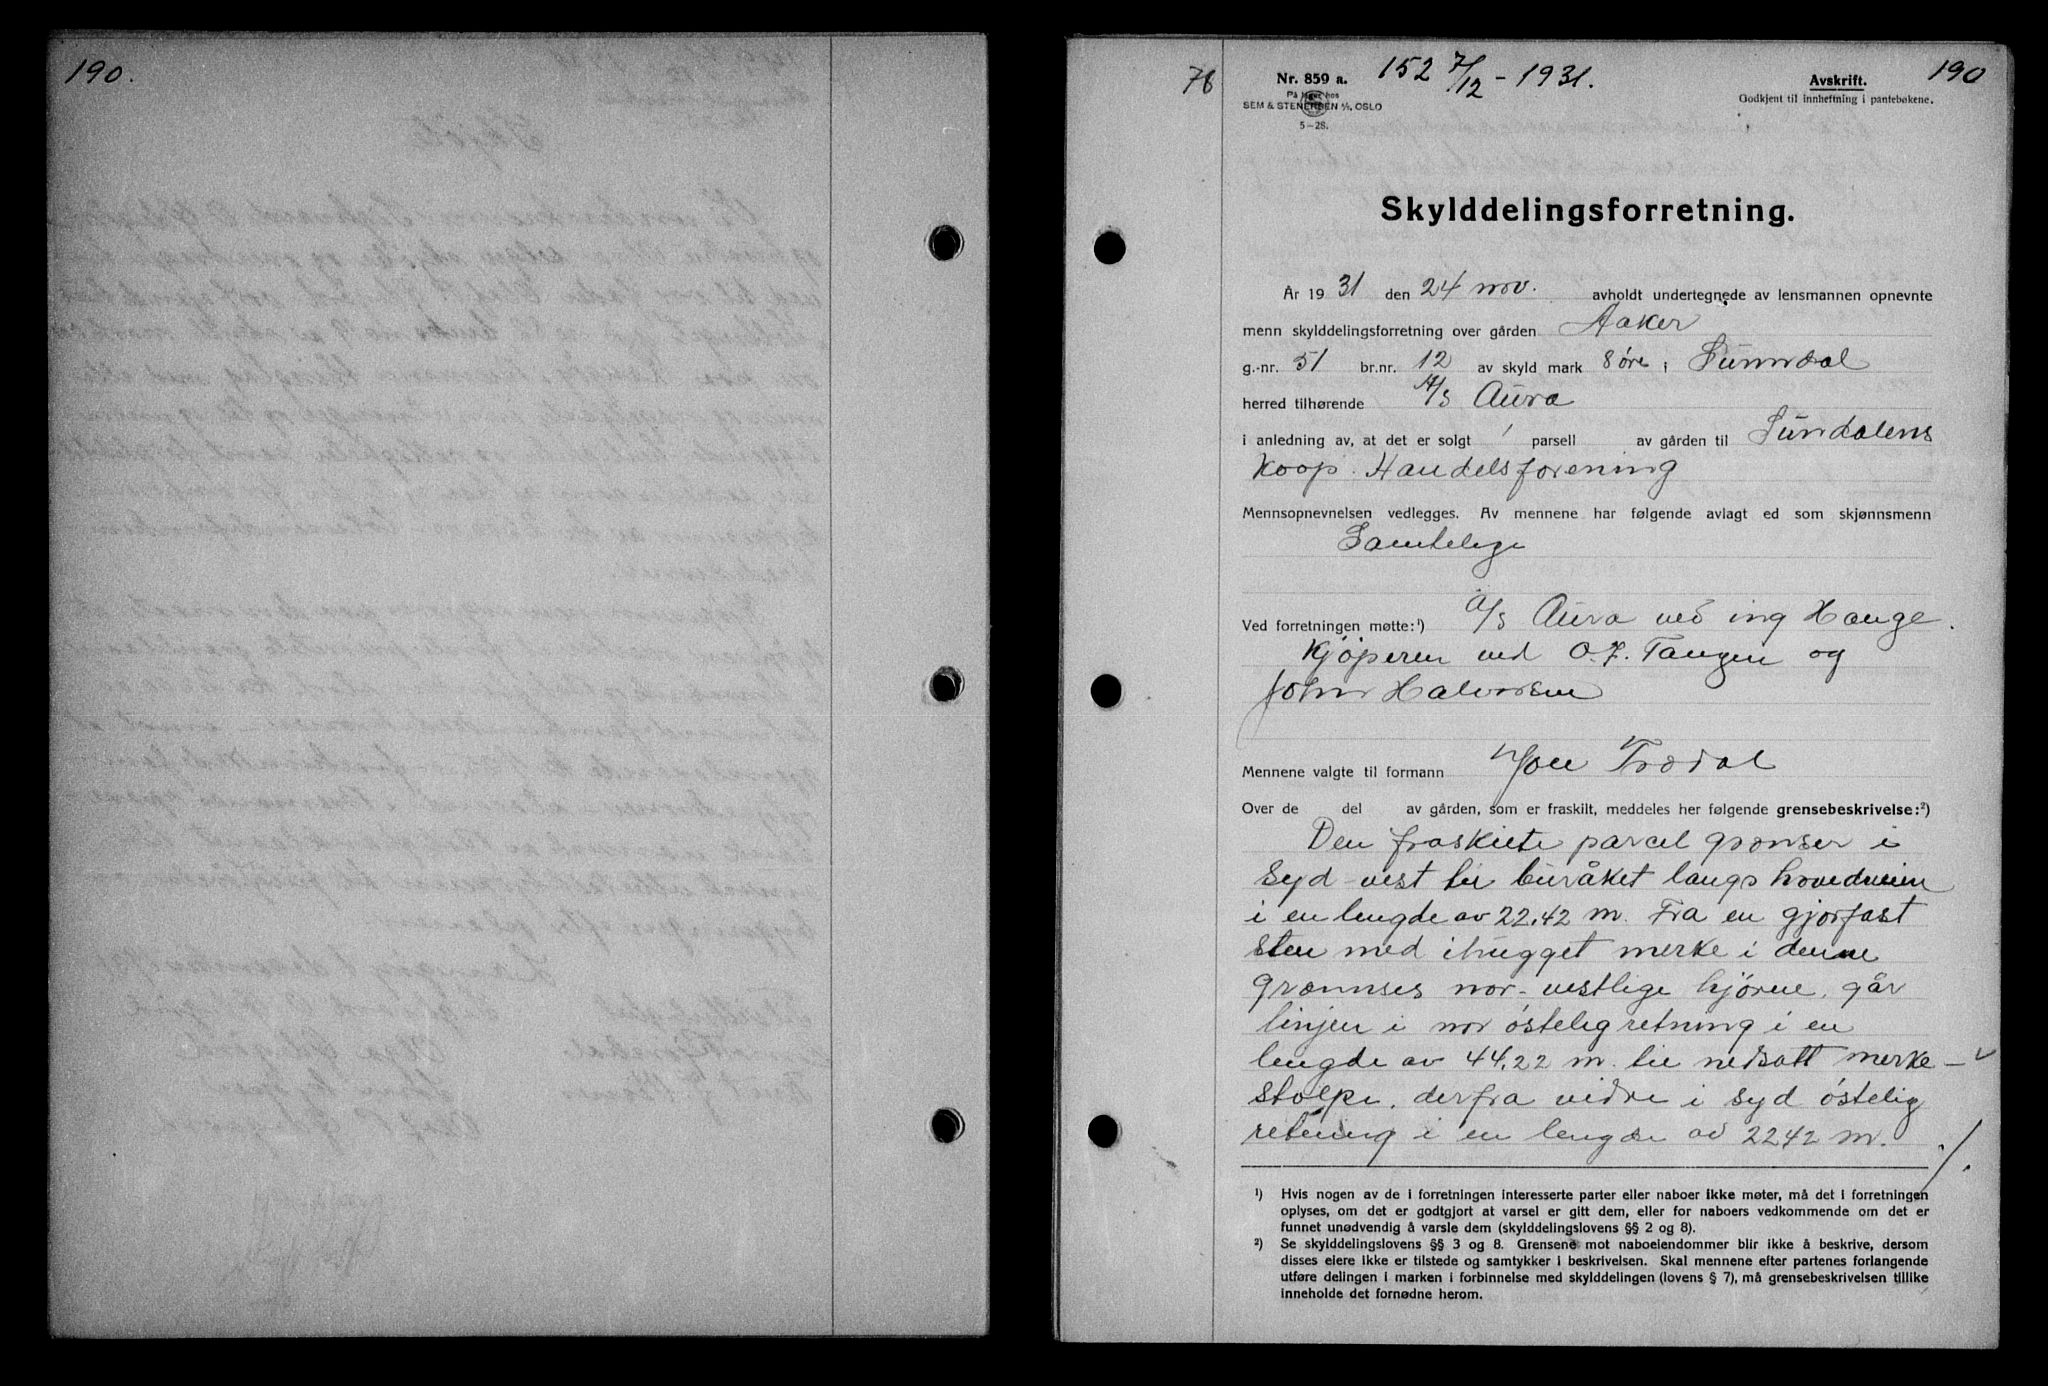 190.
78
Nr. 859 a.
152 7/12 - 1931.
Avskrift.
190
På lager hos
SEM & STENERSEN A/S, OSLO
5-28.
Godkjent til innheftning i pantebøkene.
Skylddelingsforretning.
År 1931 den 24 nov. avholdt undertegnede av lensmannen opnevnte
menn skylddelingsforretning over gården Aaker
g.-nr. 51 br.nr. 12 av skyld mark 8 øre i Sunndal
herred tilhørende A/S Aura
i anledning av, at det er solgt 1 parsell av gården til Sundalens
Koop. Handelsforening
Mennsopnevnelsen vedlegges. Av mennene har følgende avlagt ed som skjønnsmenn
Samtelige
Ved forretningen møtte:¹) A/S Aura ved ing Hauge.
Kjøperen ved O. J. Tangen og
John Halvorsen
Mennene valgte til formann Jon Trædal
Over de del av gården, som er fraskilt, meddeles her følgende grensebeskrivelse:²)
Den fraskilte parcel grænser i
syd-vest til buråket langs hovedveien
i en lengde av 22,42 m. Fra en gjorfast
sten med ihugget merke i denne
grænnses nor-vestlige hjørne, går
linjen i nor østelig retning i en
lengde av 44,22 m. til nedsatt merke-
stolpe, derfra vidre i syd østelig
retning i en lengde av 2242 m. ./.
¹) Hvis nogen av de i forretningen interesserte parter eller naboer ikke møter, må det i forretningen
oplyses, om det er godtgjort at varsel er gitt dem, eller for naboers vedkommende om det er
funnet unødvendig å varsle dem (skylddelingslovens §§ 2 og 8).
²) Se skylddelingslovens §§ 3 og 8. Grensene mot naboeiendommer blir ikke å beskrive, dersom
disses eiere ikke er tilstede og samtykker i beskrivelsen. Skal mennene efter partenes forlangende
utføre delingen i marken i forbinnelse med skylddelingen (lovens § 7), må grensebeskrivelsen tillike
inneholde det fornødne herom.